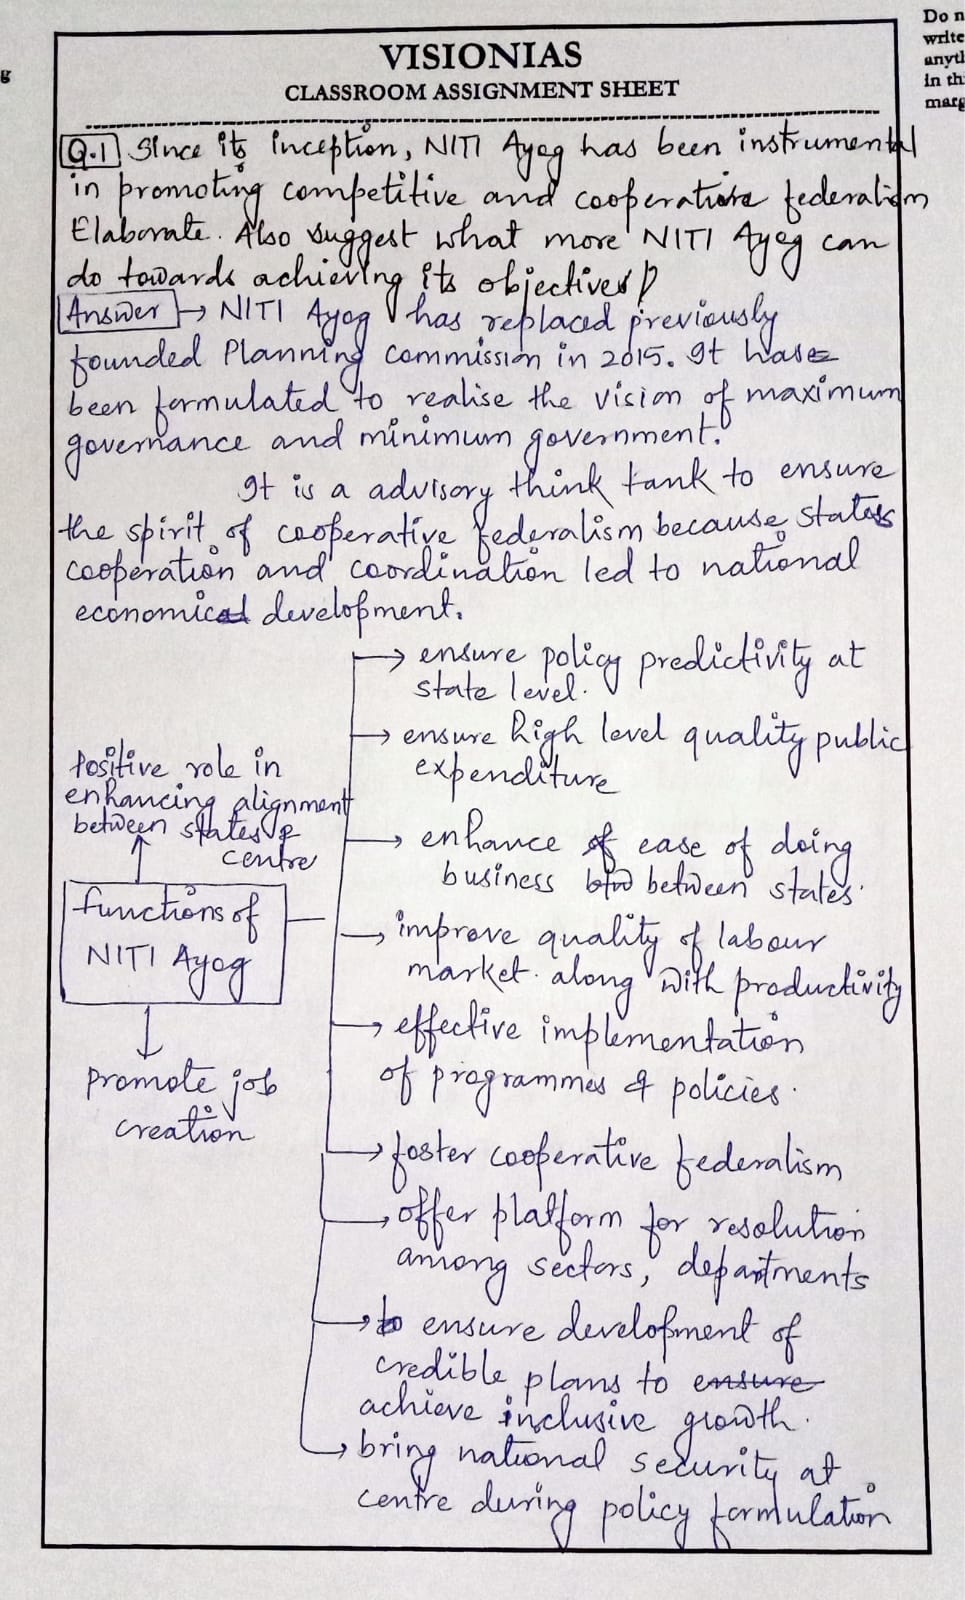 Do n
write
anytl
in th
marg
g
VISIONIAS
CLASSROOM ASSIGNMENT SHEET
Q.1 Since its inception, NITI Ayog has been instrumental
in promoting competitive and cooperative federalism
Elaborate. Also suggest what more NITI Ayog can
do towards achieving its objectives?
Answer → NITI Ayog has replaced previously
founded Planning Commission in 2015. It has
been formulated to realise the vision of maximum
governance and minimum government.
It is a advisory think tank to ensure
the spirit of cooperative federalism because states
cooperation and coordination led to national
economic development.
→ ensure policy predictivity at
state level.
→ ensure high level quality public
expenditure
Positive role in
enhancing alignment
between states &
centre
→ enhance ease of doing
business between states.
functions of
NITI Ayog
→ improve quality of labour
market. along with productivity
→ effective implementation
of programmes & policies.
promote job
creation
→ foster cooperative federalism
→ offer platform for resolution
among sectors, departments
→ to ensure development of
credible plans to ensure
achieve inclusive growth.
→ bring national security at
centre during policy formulation